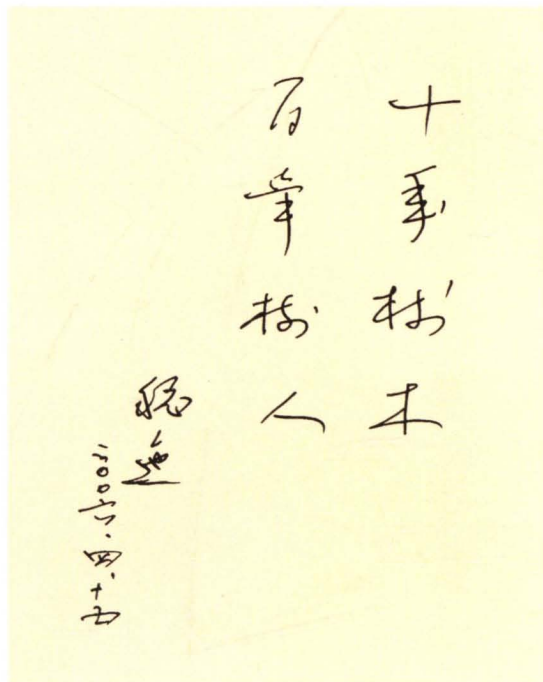 十年树木
百年树人
二〇〇六.四.十五